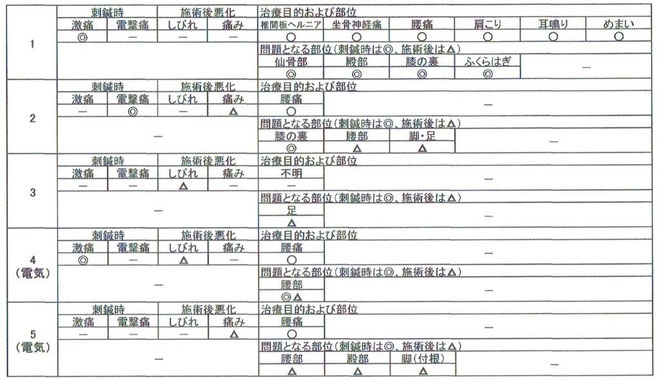 刺鍼時 施術後悪化 治療目的および部位
1 激痛 電撃痛 しびれ 痛み 椎間板ヘルニア 坐骨神経痛 腰痛 肩こり 耳鳴り めまい
◎ － － － ○ ○ ○ ○ ○ ○
－ 問題となる部位(刺鍼時は◎、施術後は△)
仙骨部 殿部 膝の裏 ふくらはぎ －
◎ ◎ ◎ ◎
刺鍼時 施術後悪化 治療目的および部位
2 激痛 電撃痛 しびれ 痛み 腰痛 －
－ ◎ － △ ○
－ 問題となる部位(刺鍼時は◎、施術後は△)
膝の裏 腰部 脚・足 －
◎ △ △
刺鍼時 施術後悪化 治療目的および部位
3 激痛 電撃痛 しびれ 痛み 不明 －
－ － △ － －
－ 問題となる部位(刺鍼時は◎、施術後は△)
足 －
△
刺鍼時 施術後悪化 治療目的および部位
4 (電気) 激痛 電撃痛 しびれ 痛み 腰痛 －
◎ － △ － ○
－ 問題となる部位(刺鍼時は◎、施術後は△)
腰部 －
◎△
刺鍼時 施術後悪化 治療目的および部位
5 (電気) 激痛 電撃痛 しびれ 痛み 腰痛 －
－ － － △ ○
－ 問題となる部位(刺鍼時は◎、施術後は△)
腰部 殿部 脚(付根) －
△ △ △